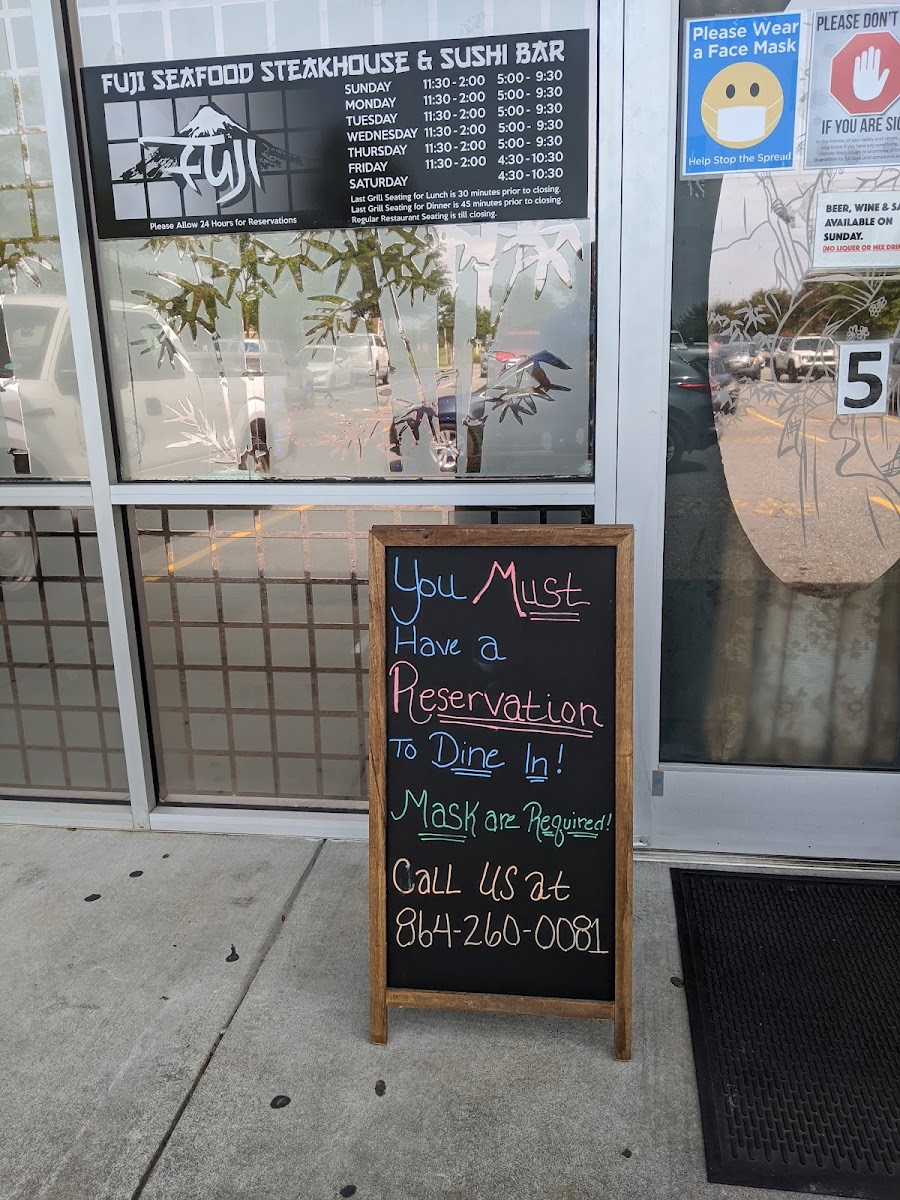 FUJI SEAFOOD STEAKHOUSE & SUSHI BAR
Fuji
SUNDAY 11:30 - 2:00 5:00 - 9:30
MONDAY 11:30 - 2:00 5:00 - 9:30
TUESDAY 11:30 - 2:00 5:00 - 9:30
WEDNESDAY 11:30 - 2:00 5:00 - 9:30
THURSDAY 11:30 - 2:00 5:00 - 9:30
FRIDAY 11:30 - 2:00 4:30 - 10:30
SATURDAY 4:30 - 10:30
Last Grill Seating for Lunch is 30 minutes prior to closing.
Last Grill Seating for Dinner is 45 minutes prior to closing.
Regular Restaurant Seating is till closing.
Please Allow 24 Hours for Reservations
Please Wear
a Face Mask
Help Stop the Spread
PLEASE DON'T
IF YOU ARE
BEER, WINE &
AVAILABLE ON
SUNDAY.
(NO LIQUER OR MIX
5
You Must
Have a
Reservation
To Dine In!
Mask are Required!
Call us at
864-260-0081